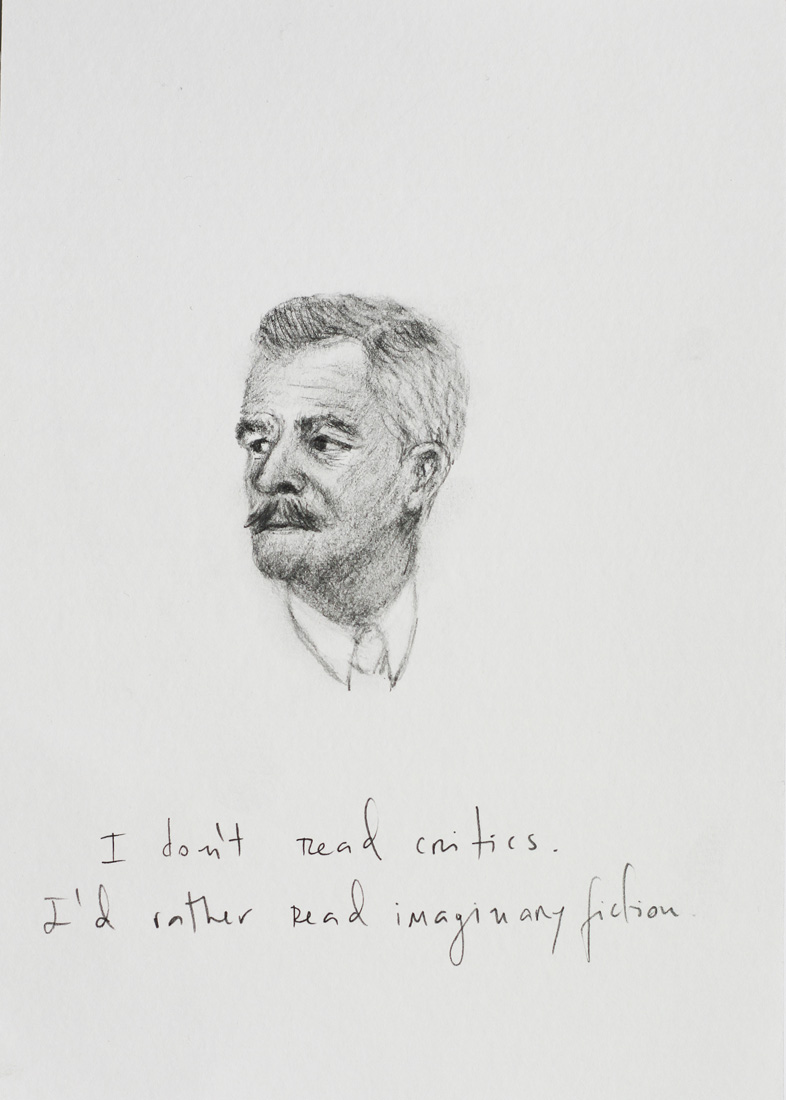 I don't read critics.
I'd rather read imaginary fiction.